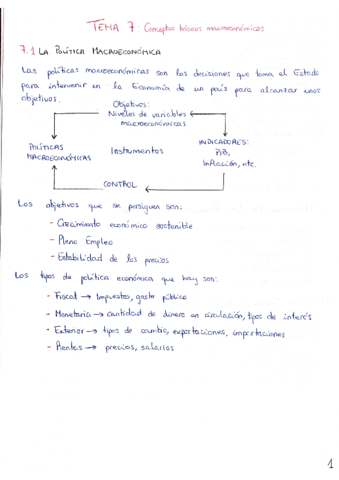 TEMA 7: Conceptos básicos macroeconómicos
7.1 LA POLÍTICA MACROECONÓMICA
Las políticas macroeconómicas son las decisiones que toma el Estado
para intervenir en la Economía de un país para alcanzar unos
objetivos.
Objetivos:
Niveles de variables
macroeconómicas
POLÍTICAS
MACROECONÓMICAS
Instrumentos
INDICADORES:
PIB,
Inflación, etc.
CONTROL
Los objetivos que se persiguen son:
- Crecimiento económico sostenible
- Pleno Empleo
- Estabilidad de los precios
Los tipos de política económica que hay son:
- Fiscal → Impuestos, gasto público
- Monetaria → cantidad de dinero en circulación, tipos de interés
- Exterior → tipos de cambio, exportaciones, importaciones
- Rentas → precios, salarios
1